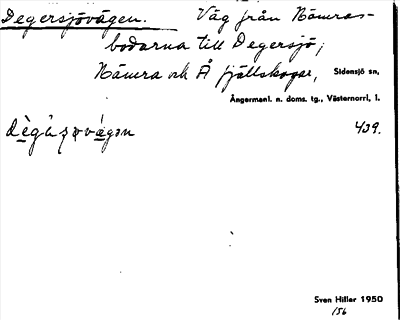 Degersjövägen. Väg från Nämras-
bodarna till Degersjö,
Nämra och Å fjällskogar, Sidensjö sn,
Ångermanl. n. doms. tg., Västernorrl, l.
439.
Sven Hiller 1950
156